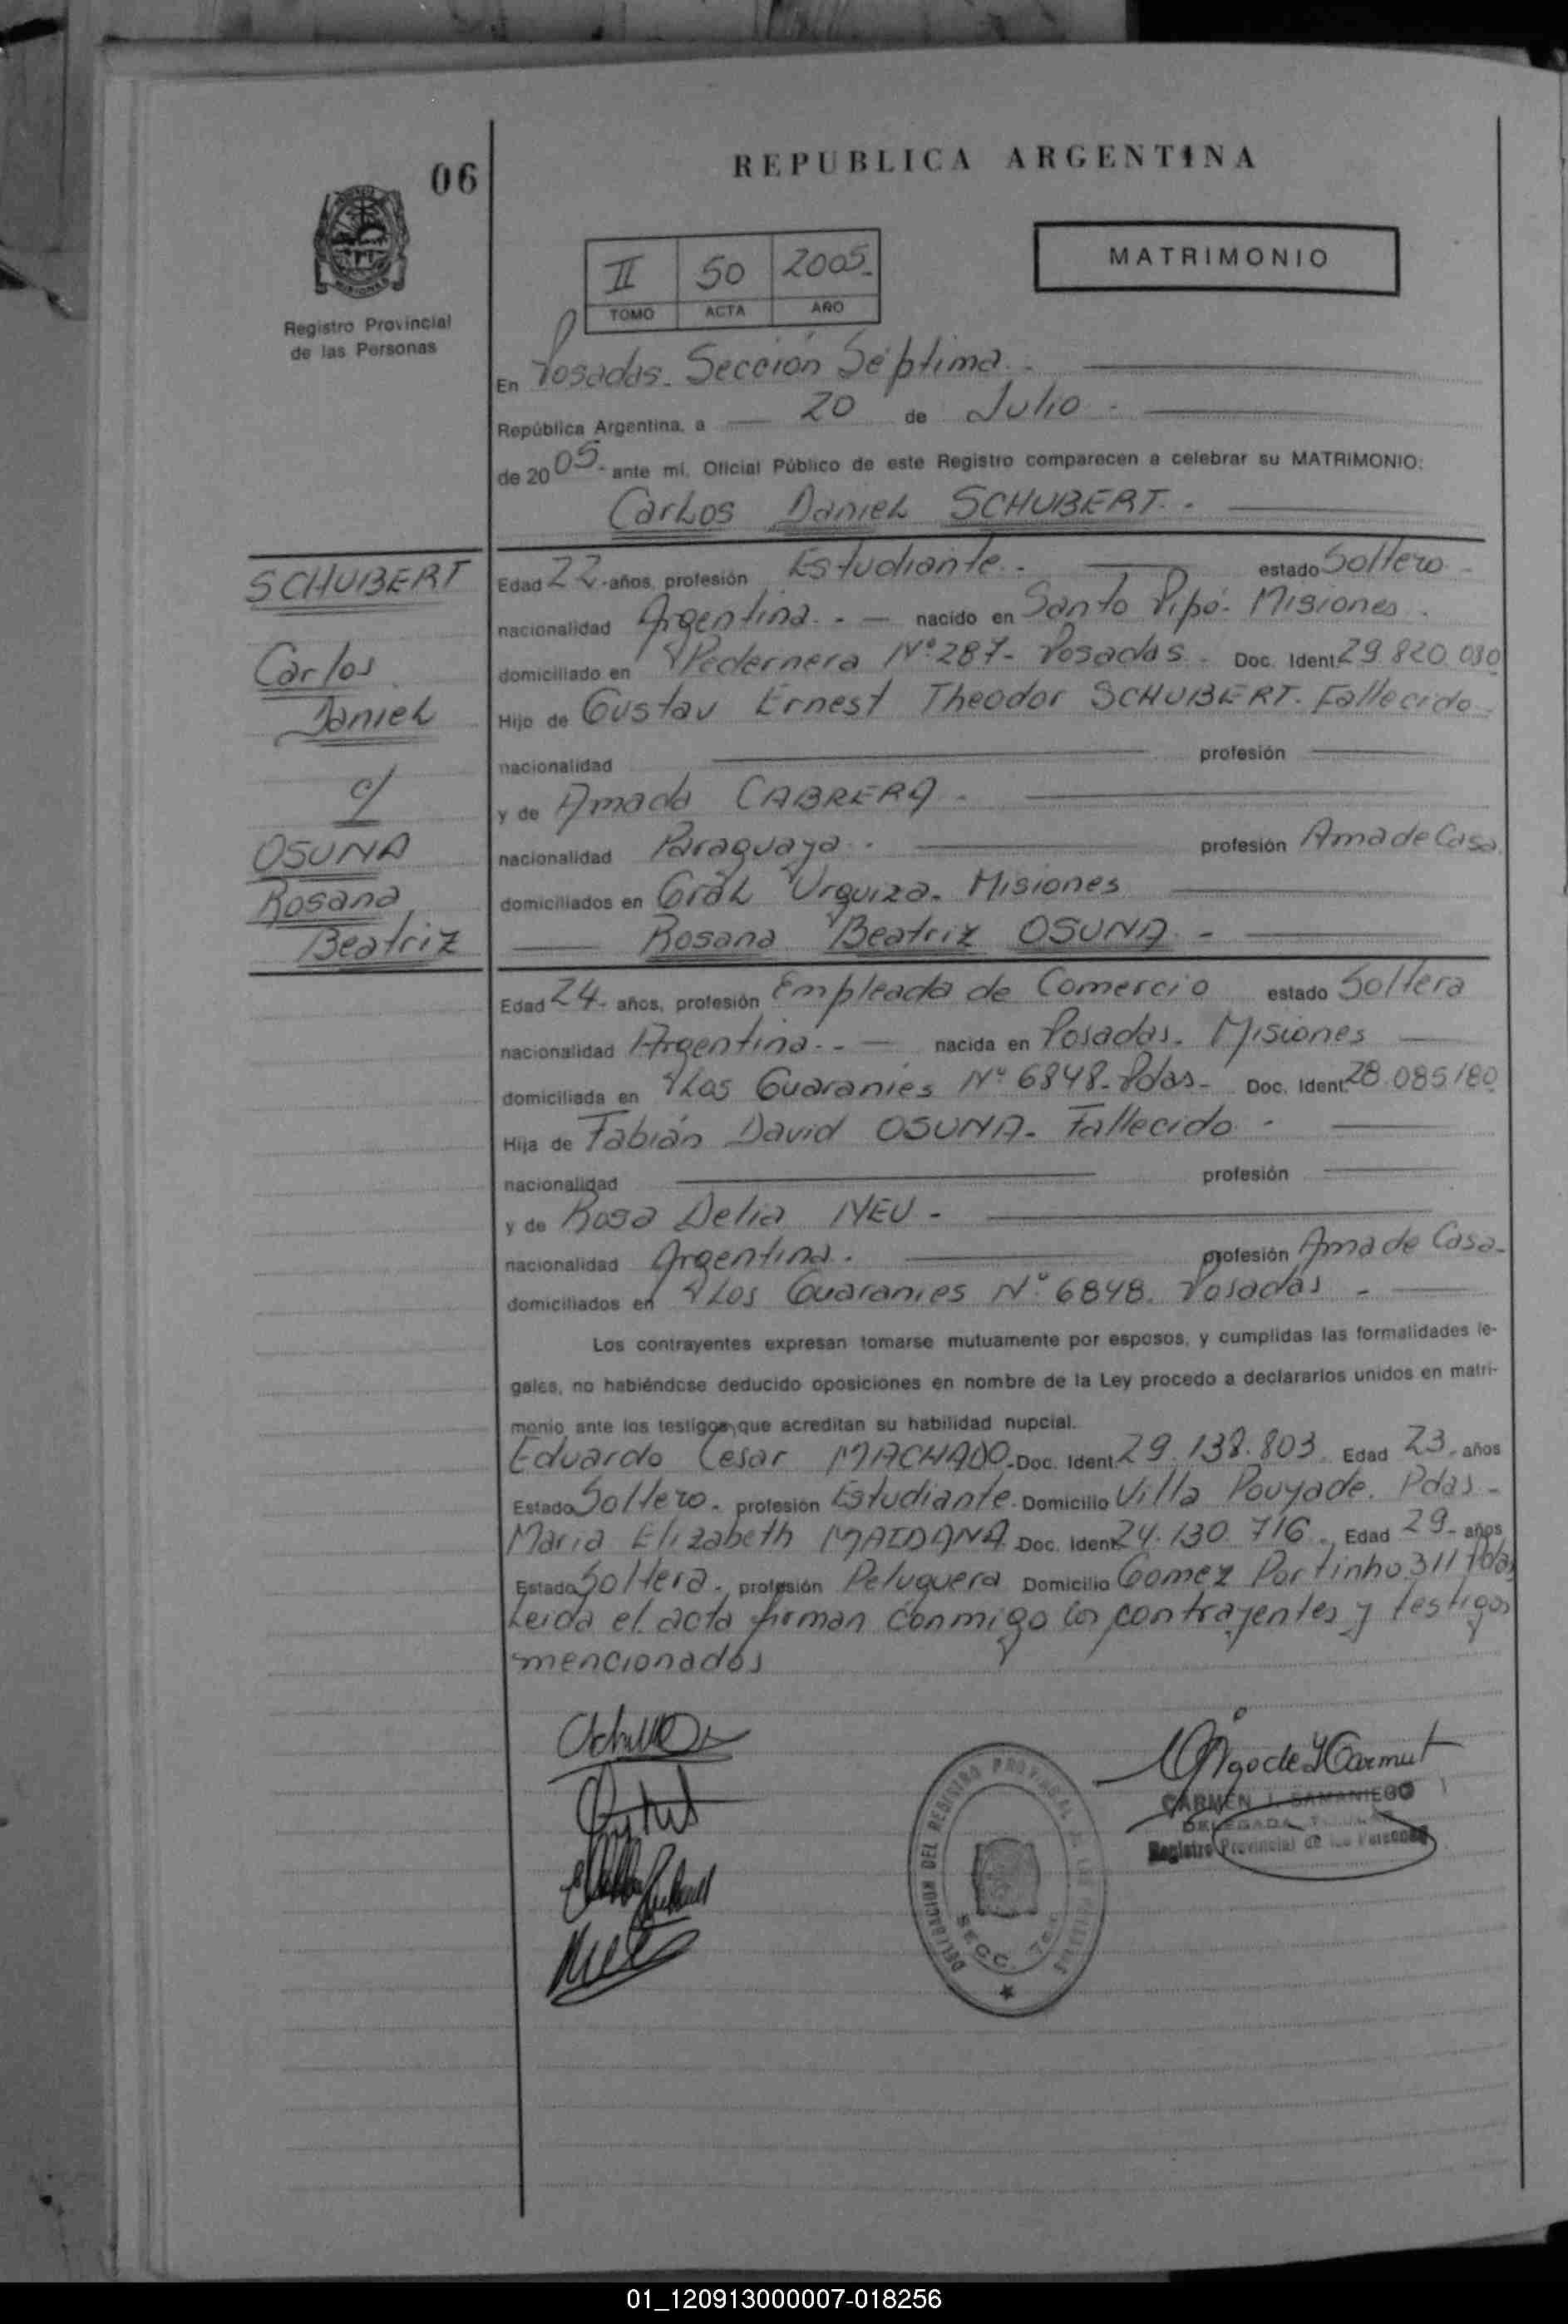 REPUBLICA ARGENTINA
06
MATRIMONIO
II 50 2005-
TOMO ACTA AÑO
Registro Provincial
de las Personas
En Posadas. Sección Séptima.
República Argentina, a 20 de Julio.
de 2005.- ante mí, Oficial Público de este Registro comparecen a celebrar su MATRIMONIO:
Carlos Daniel SCHUBERT.
SCHUBERT
Carlos
Daniel
c/
OSUNA
Rosana
Beatriz
Edad 22.- años, profesión Estudiante. estado Soltero
nacionalidad Argentina. nacido en Santo Pipó. Misiones.
domiciliado en Pedernera Nº 287- Posadas. Doc. Ident. 29.820.080
Hijo de Gustav Ernest Theodor SCHUBERT. Fallecido
nacionalidad profesión
y de Amada CABRERA.
nacionalidad Paraguaya. profesión Ama de Casa.
domiciliados en Gral Urquiza. Misiones
Rosana Beatriz OSUNA.
Edad 24.- años, profesión Empleada de Comercio estado Soltera
nacionalidad Argentina. nacida en Posadas. Misiones
domiciliada en Los Guaranies Nº 6848. Pdas- Doc. Ident. 28.085180
Hija de Fabián David OSUNA. Fallecido.
nacionalidad profesión
y de Rosa Delia NEU.
nacionalidad Argentina. profesión Ama de Casa-
domiciliados en Los Guaranies Nº 6848. Posadas
Los contrayentes expresan tomarse mutuamente por esposos, y cumplidas las formalidades le-
gales, no habiéndose deducido oposiciones en nombre de la Ley procedo a declararlos unidos en matri-
monio ante los testigos que acreditan su habilidad nupcial.
Eduardo Cesar MACHADO. Doc. Ident. 29.138.803 Edad 23. años
Estado Soltero. profesión Estudiante. Domicilio Villa Pouyade. Pdas-
Maria Elizabeth MAIDANA. Doc. Ident. 24.130.716. Edad 29- años
Estado Soltera. profesión Peluquera Domicilio Gomez Portinho 311 Pdas
Leida el acta firman conmigo los contrayentes y testigos
mencionados
CARMEN I. SAMANIEGO
DELEGADA TITULAR
Registro Provincial de las Personas
DELEGACION DEL REGISTRO PROVINCIAL DE LAS PERSONAS
SECC. 7ma
01_120913000007-018256